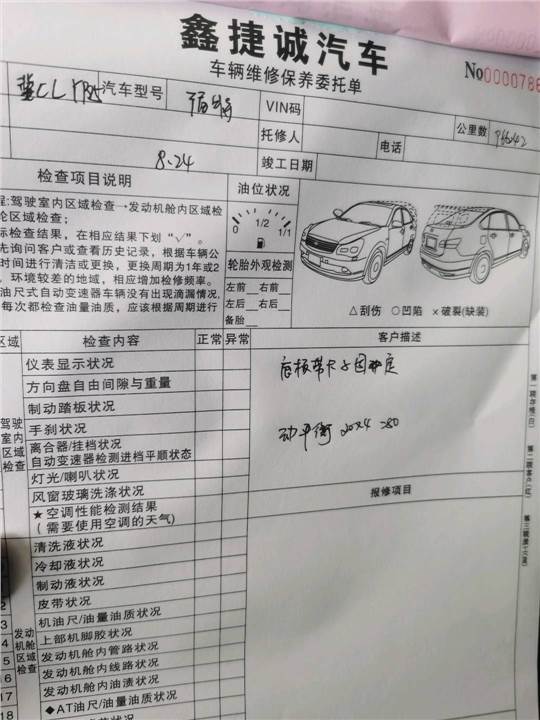 鑫捷诚汽车
车辆维修保养委托单
No0000786
冀CL 汽车型号
VIN码
公里数
托修人
电话
8.24
竣工日期
检查项目说明
油位状况
程:驾驶室内区域检查→发动机舱内区域检
轮区域检查;
标检查结果,在相应结果下划“√”。
先询问客户或查看历史记录,根据车辆
时间进行清洁或更换,更换周期为1年或2
,环境较差的地域,相应增加检修频率。
油尺式自动变速器车辆没有出现滴漏情况,
每次都检查油量油质,应该根据周期进行
0 1/2 1/1
轮胎外观检测
左前 右前
左后 右后
备胎
△刮伤 ○凹陷 ×破裂(缺装)
区域
检查内容
正常
异常
客户描述
驾驶
室内
区域
检查
仪表显示状况
方向盘自由间隙与重量
制动踏板状况
手刹状况
离合器/挂档状况
自动变速器检测进档平顺状态
灯光/喇叭状况
风窗玻璃洗涤状况
★空调性能检测结果
(需要使用空调的天气)
底板带卡子固
动平衡 20×4 =80
报修项目
发动
机舱
区域
检查
清洗液状况
冷却液状况
制动液状况
皮带状况
机油尺/油量油质状况
上部机脚胶状况
发动机舱内管路状况
发动机舱内线路状况
发动机舱内油渍状况
◆AT油尺/油量油质状况
2
3
4
5
16
17
18
第一联存根(白)
第二联客户(红)